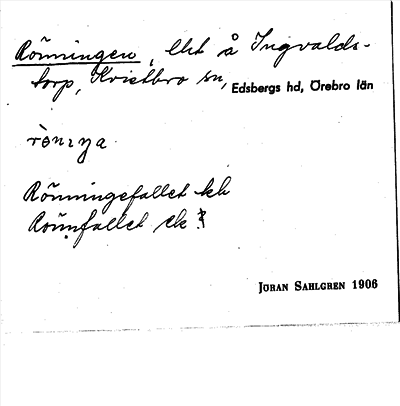 Rönningen, lht å Ingvalds-
torp, Kvistbro sn, Edsbergs hd, Örebro län
Rönningefallet
Rönnfallet
JÖRAN SAHLGREN 1906